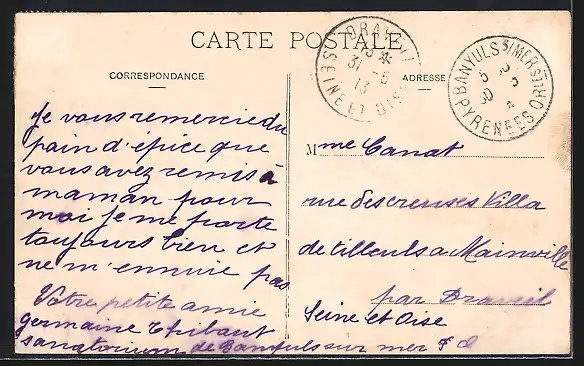 CARTE POSTALE
CORRESPONDANCE
Je vous remercie du
pain d'épice que
vous avez remis à
maman pour
moi je me porte
toujours bien et
ne m'ennuie pas
Votre petite amie
germaine Thibaut
sanatorium de Banyuls sur mer P O
ADRESSE
Mme Canat
rue des creuses Villa
de tilleuls a Mainville
par Draveil
Seine et Oise
DRAVEIL
31 -5
13
SEINE ET OISE
BANYULS S/MER
5
30
PYRENEES ORLES